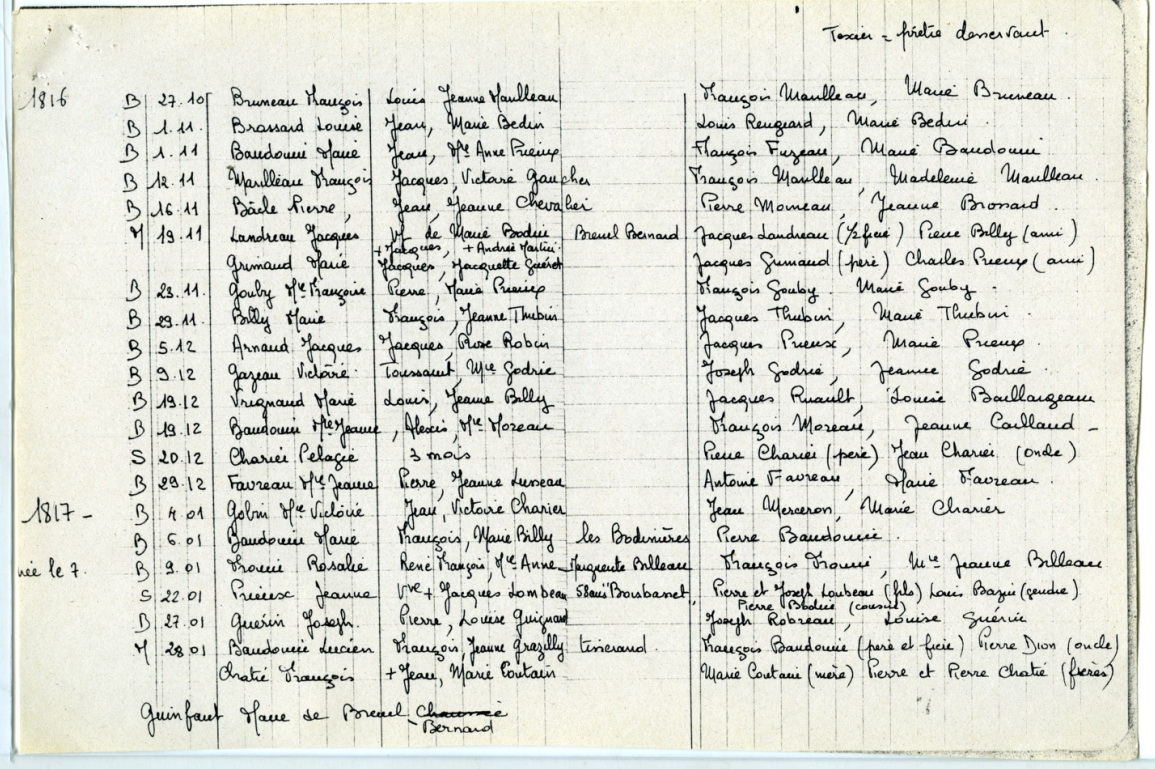 Texier = prêtre desservant.
1816 B 27.10 Bruneau François Louis Jeanne Maulleau François Maulleau, Marie Bruneau.
B 1.11. Brossard Louise Jean, Marie Bedin Louis Rengeard, Marie Bedin.
B 1.11 Baudouin Marie Jean, Mie Anne Prieux François Fuzeau, Marie Baudouin
B 12.11 Maulleau François Jacques, Victoire Gaucher François Maulleau, Madeleine Maulleau.
B 16.11 Bâcle Pierre, Jean, Jeanne Chevalier Pierre Moineau, Jeanne Brossard.
M 19.11 Landreau Jacques vf de Marie Bodin Breuil Bernard Jacques Landreau (1/2 frère) Pierre Billy (ami)
+ Jacques, + Andrée Martin
Grimaud Marie Jacques, Jacquette Guéret Jacques Grimaud (père) Charles Prieux (ami)
B 23.11. Gouby Mie Françoise Pierre, Marie Prieux François Gouby. Marie Gouby.
B 29.11. Billy Marie François, Jeanne Thubin Jacques Thubin, Marie Thubin.
B 5.12 Arnaud Jacques Jacques, Rose Robin Jacques Prieux, Marie Prieux.
B 9.12 Gazeau Victoire. Toussaint, Mie Godrie Joseph Godrie, Jeanne Godrie.
B 19.12 Vrignaud Marie Louis, Jeanne Billy Jacques Ruault, Louise Baillargeau
B 19.12 Baudouin Mie Jeanne, Alexis, Mie Moreau François Moreau, Jeanne Caillaud -
S 20.12 Charier Pélagie 3 mois Pierre Charier (père) Jean Charier (oncle)
B 29.12 Favreau Mie Jeanne Pierre, Jeanne Lusseau Antoine Favreau, Marie Favreau.
1817 - B 4.01 Gobin Mie Victoire Jean, Victoire Charier Jean Merceron, Marie Charier
B 6.01 Baudouin Marie François, Marie Billy les Bodinières Pierre Baudouin.
née le 7. B 9.01 Fromi Rosalie René François, Mie Anne Marguerite Billeau François Fromi, Mie Jeanne Billeau
S 22.01 Prieux Jeanne Vve + Jacques Loubeau 58 ans Boisbasset, Pierre et Joseph Loubeau (fils) Louis Bazin (gendre)
Pierre Bodin (cousin)
B 27.01 Guérin Joseph. Pierre, Louise Guignard Joseph Robreau, Louise Guérin
M 28.01 Baudouin Lucien François, Jeanne Grazilly tisserand. François Baudouin (père et frère) Pierre Dion (oncle)
Chatié François + Jean, Marie Coutain Marie Coutain (mère) Pierre et Pierre Chatié (frères)
Guinfaut Marie de Breuil Chaussée
Bernard